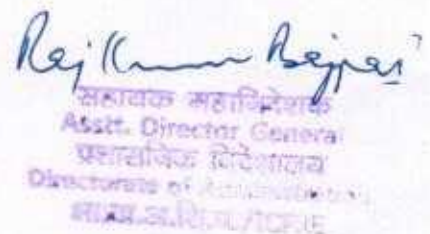 Raj Kumar Bajpai
सहायक महानिदेशक
Asstt. Director General
प्रशासनिक निदेशालय
Directorate of Administration
भा.वा.अ.शि.प./ICFRE